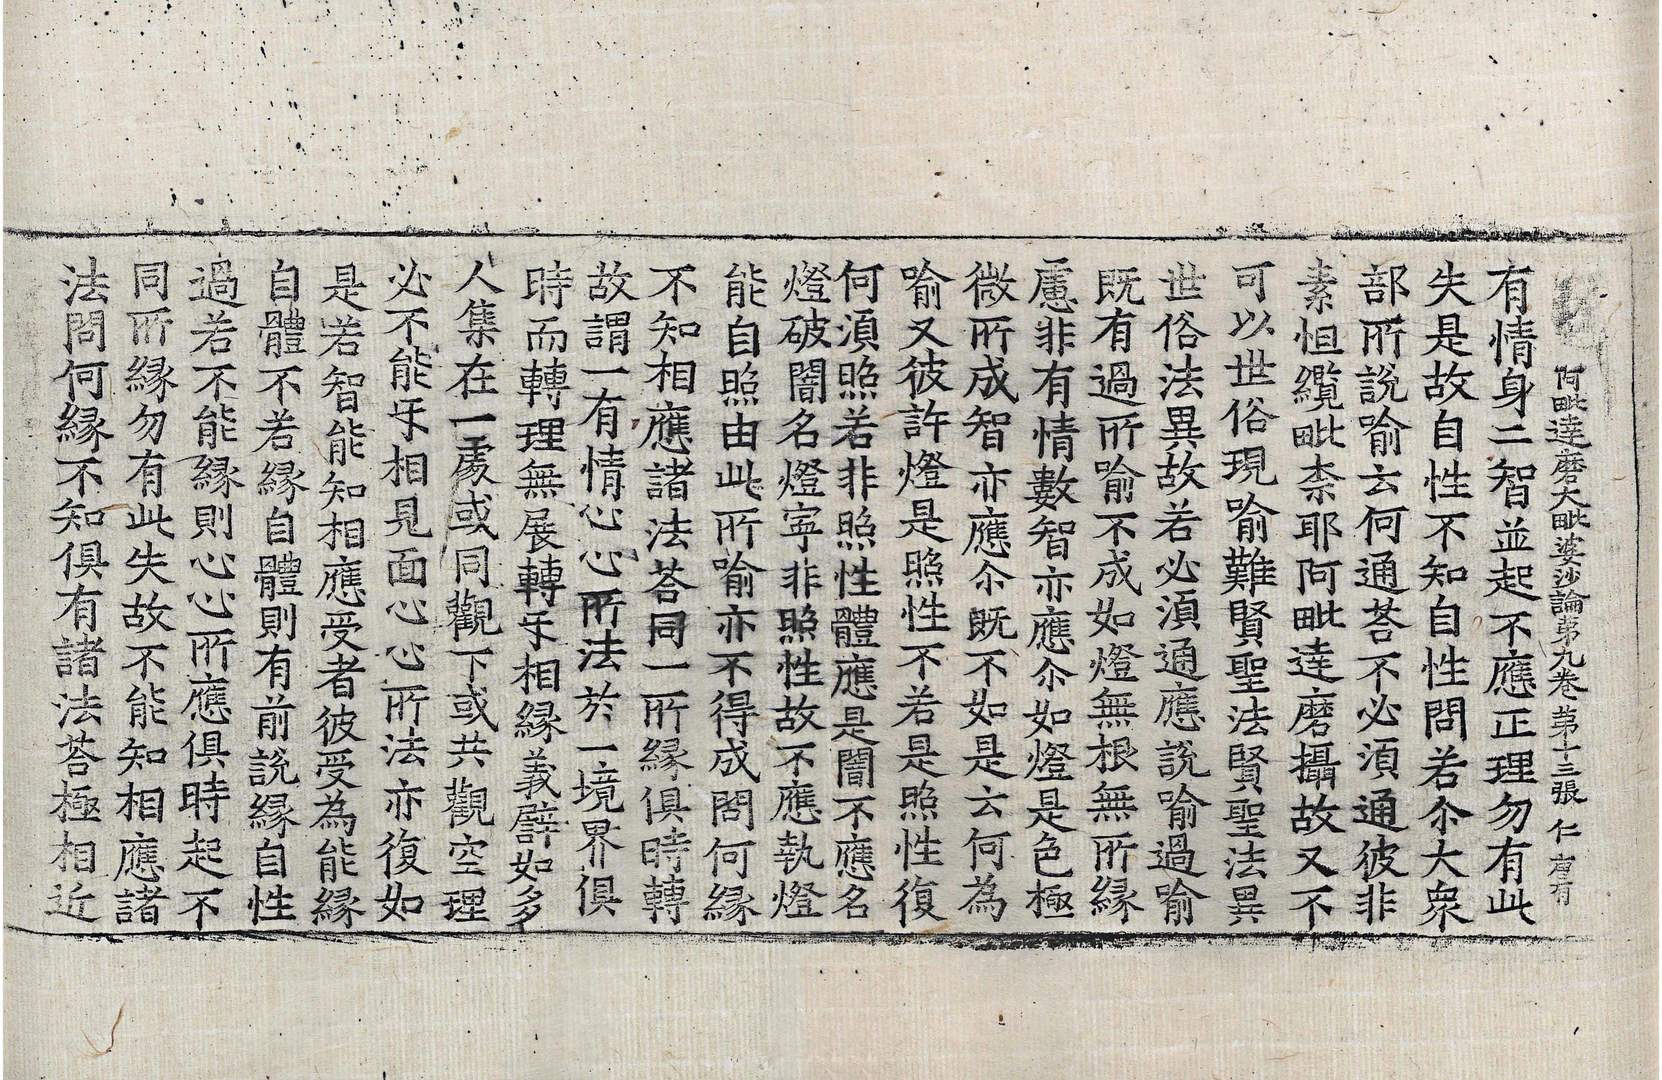 阿毗達磨大毗婆沙論第九卷 第十三張 仁
有情身二智並起不應正理勿有此
失是故自性不知自性問若尒大衆
部所說喻云何通荅不必須通彼非
素怛纜毗柰耶阿毗達磨攝故又不
可以世俗現喻難賢聖法賢聖法異
世俗法異故若必須通應說喻過喻
既有過所喻不成如燈無根無所緣
慮非有情數智亦應尒如燈是色極
微所成智亦應尒既不如是云何為
喻又彼許燈是照性不若是照性復
何須照若非照性體應是闇不應名
燈破闇名燈寕非照性故不應執燈
能自照由此所喻亦不得成問何緣
不知相應諸法荅同一所緣俱時轉
故謂一有情心心所法於一境界俱
時而轉理無展轉㸦相緣義譬如多
人集在一處或同觀下或共觀空理
必不能㸦相見面心心所法亦復如
是若智能知相應受者彼受為能緣
自體不若緣自體則有前說緣自性
過若不能緣則心心所應俱時起不
同所緣勿有此失故不能知相應諸
法問何緣不知俱有諸法荅極相近